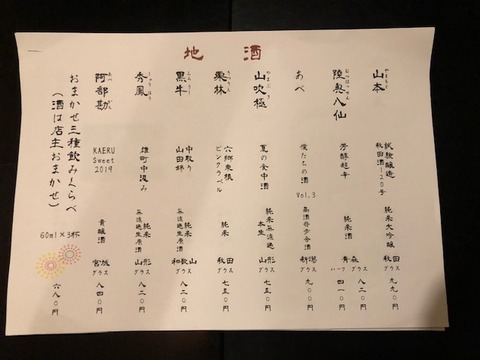 地酒
やまもと
山本
試験醸造
秋田酒120号
純米大吟醸
秋田
グラス
九九〇円
むつはっせん
陸奥八仙
芳醇超辛
純米酒
青森
グラス
八二〇円
ハーフ
四一〇円
あべ
僕たちの酒
Vol.3
新潟
グラス
九〇〇円
やまぶき
山吹極
夏の全中酒
純米無濾過
本生
山形
グラス
七五〇円
りつりん
栗林
六郷東根
ピンクラベル
純米
秋田
グラス
七五〇円
くろうし
黒牛
中取り
山田錦
純米
無濾過生原酒
和歌山
グラス
八二〇円
しゅうほう
秀鳳
雄町中汲み
純米
無濾過生原酒
山形
グラス
八二〇円
あべかん
阿部勘
KAERU
Sweet
2019
貴醸酒
宮城
グラス
八四〇円
おまかせ三種飲みくらべ
(酒は店主おまかせ)
60ml×3杯
六八〇円